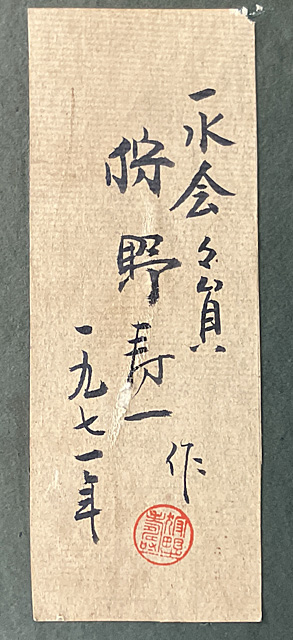 一水会々員
狩野寿一
作
一九七一年